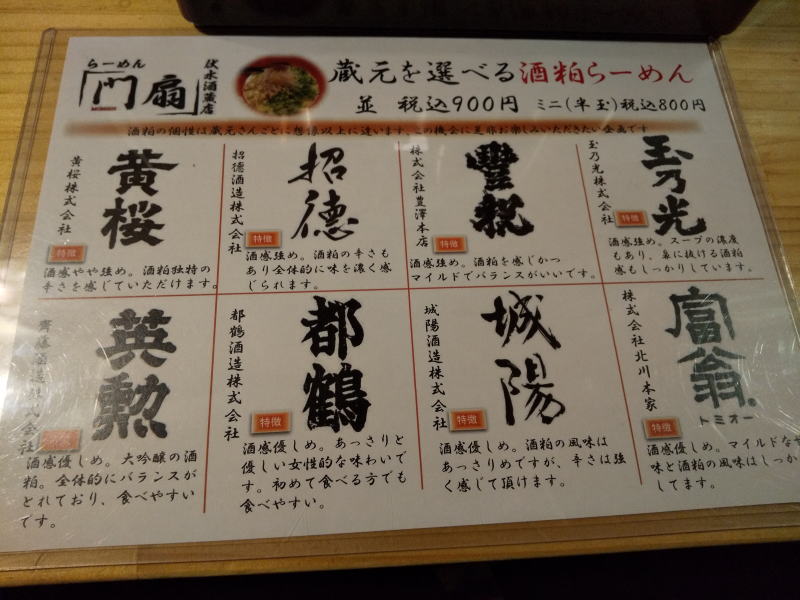 らーめん
門扇
伏水酒蔵店
蔵元を選べる酒粕らーめん
並 税込900円 ミニ(半玉)税込800円
酒粕の個性は蔵元さんごとに想像以上に違います。この機会に是非お楽しみいただきたい企画です
黄桜株式会社
黄桜
特徴
酒感やや強め。酒粕独特の
辛さを感じていただけます。
招德酒造株式会社
招德
特徴
酒感強め。酒粕の辛さも
あり全体的に味を濃く感
じられます。
株式会社豊澤本店
豊祝
特徴
酒感強め。酒粕を感じかつ
マイルドでバランスがいいです。
玉乃光株式会社
玉乃光
特徴
酒感強め。スープの濃度
もあり、鼻に抜ける酒粕
感もしっかりしています。
齊藤酒造株式会社
英勲
特徴
酒感優しめ。大吟醸の酒
粕。全体的にバランスが
とれており、食べやすい
です。
都鶴酒造株式会社
都鶴
特徴
酒感優しめ。あっさりと
優しい女性的な味わいで
す。初めて食べる方でも
食べやすい。
城陽酒造株式会社
城陽
特徴
酒感優しめ。酒粕の風味は
あっさりめですが、辛さは強
く感じて頂けます。
株式会社北川本家
富翁
トミオー
特徴
酒感優しめ。マイルドな
味と酒粕の風味はしっか
してます。